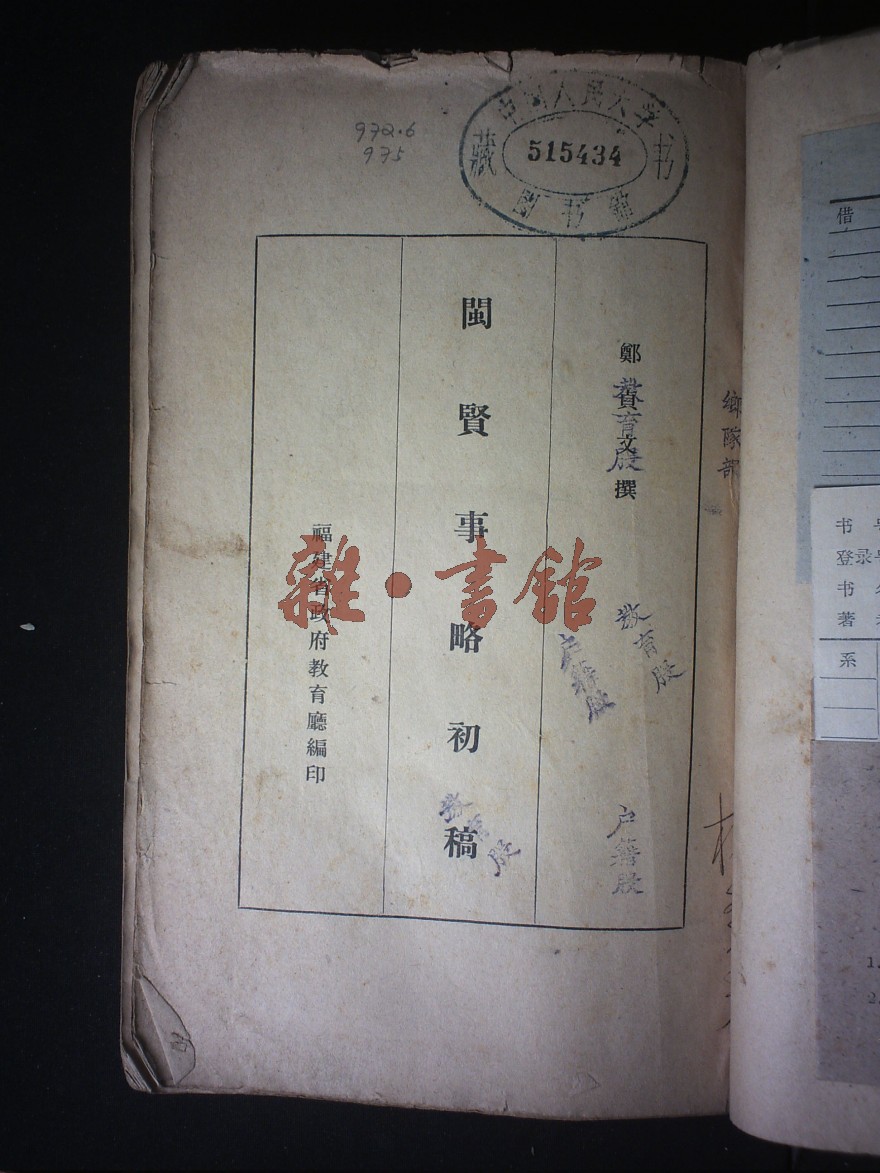 972.6
975
中国人民大学
藏 515434 书
图书馆
鄭貞文撰
教育股
閩賢事略初稿
福建省政府教育廳編印
雜·書館
教育股
户籍股
户籍股
教育股
鄉隊部
借
书
登录
书
著
系
1.
2.